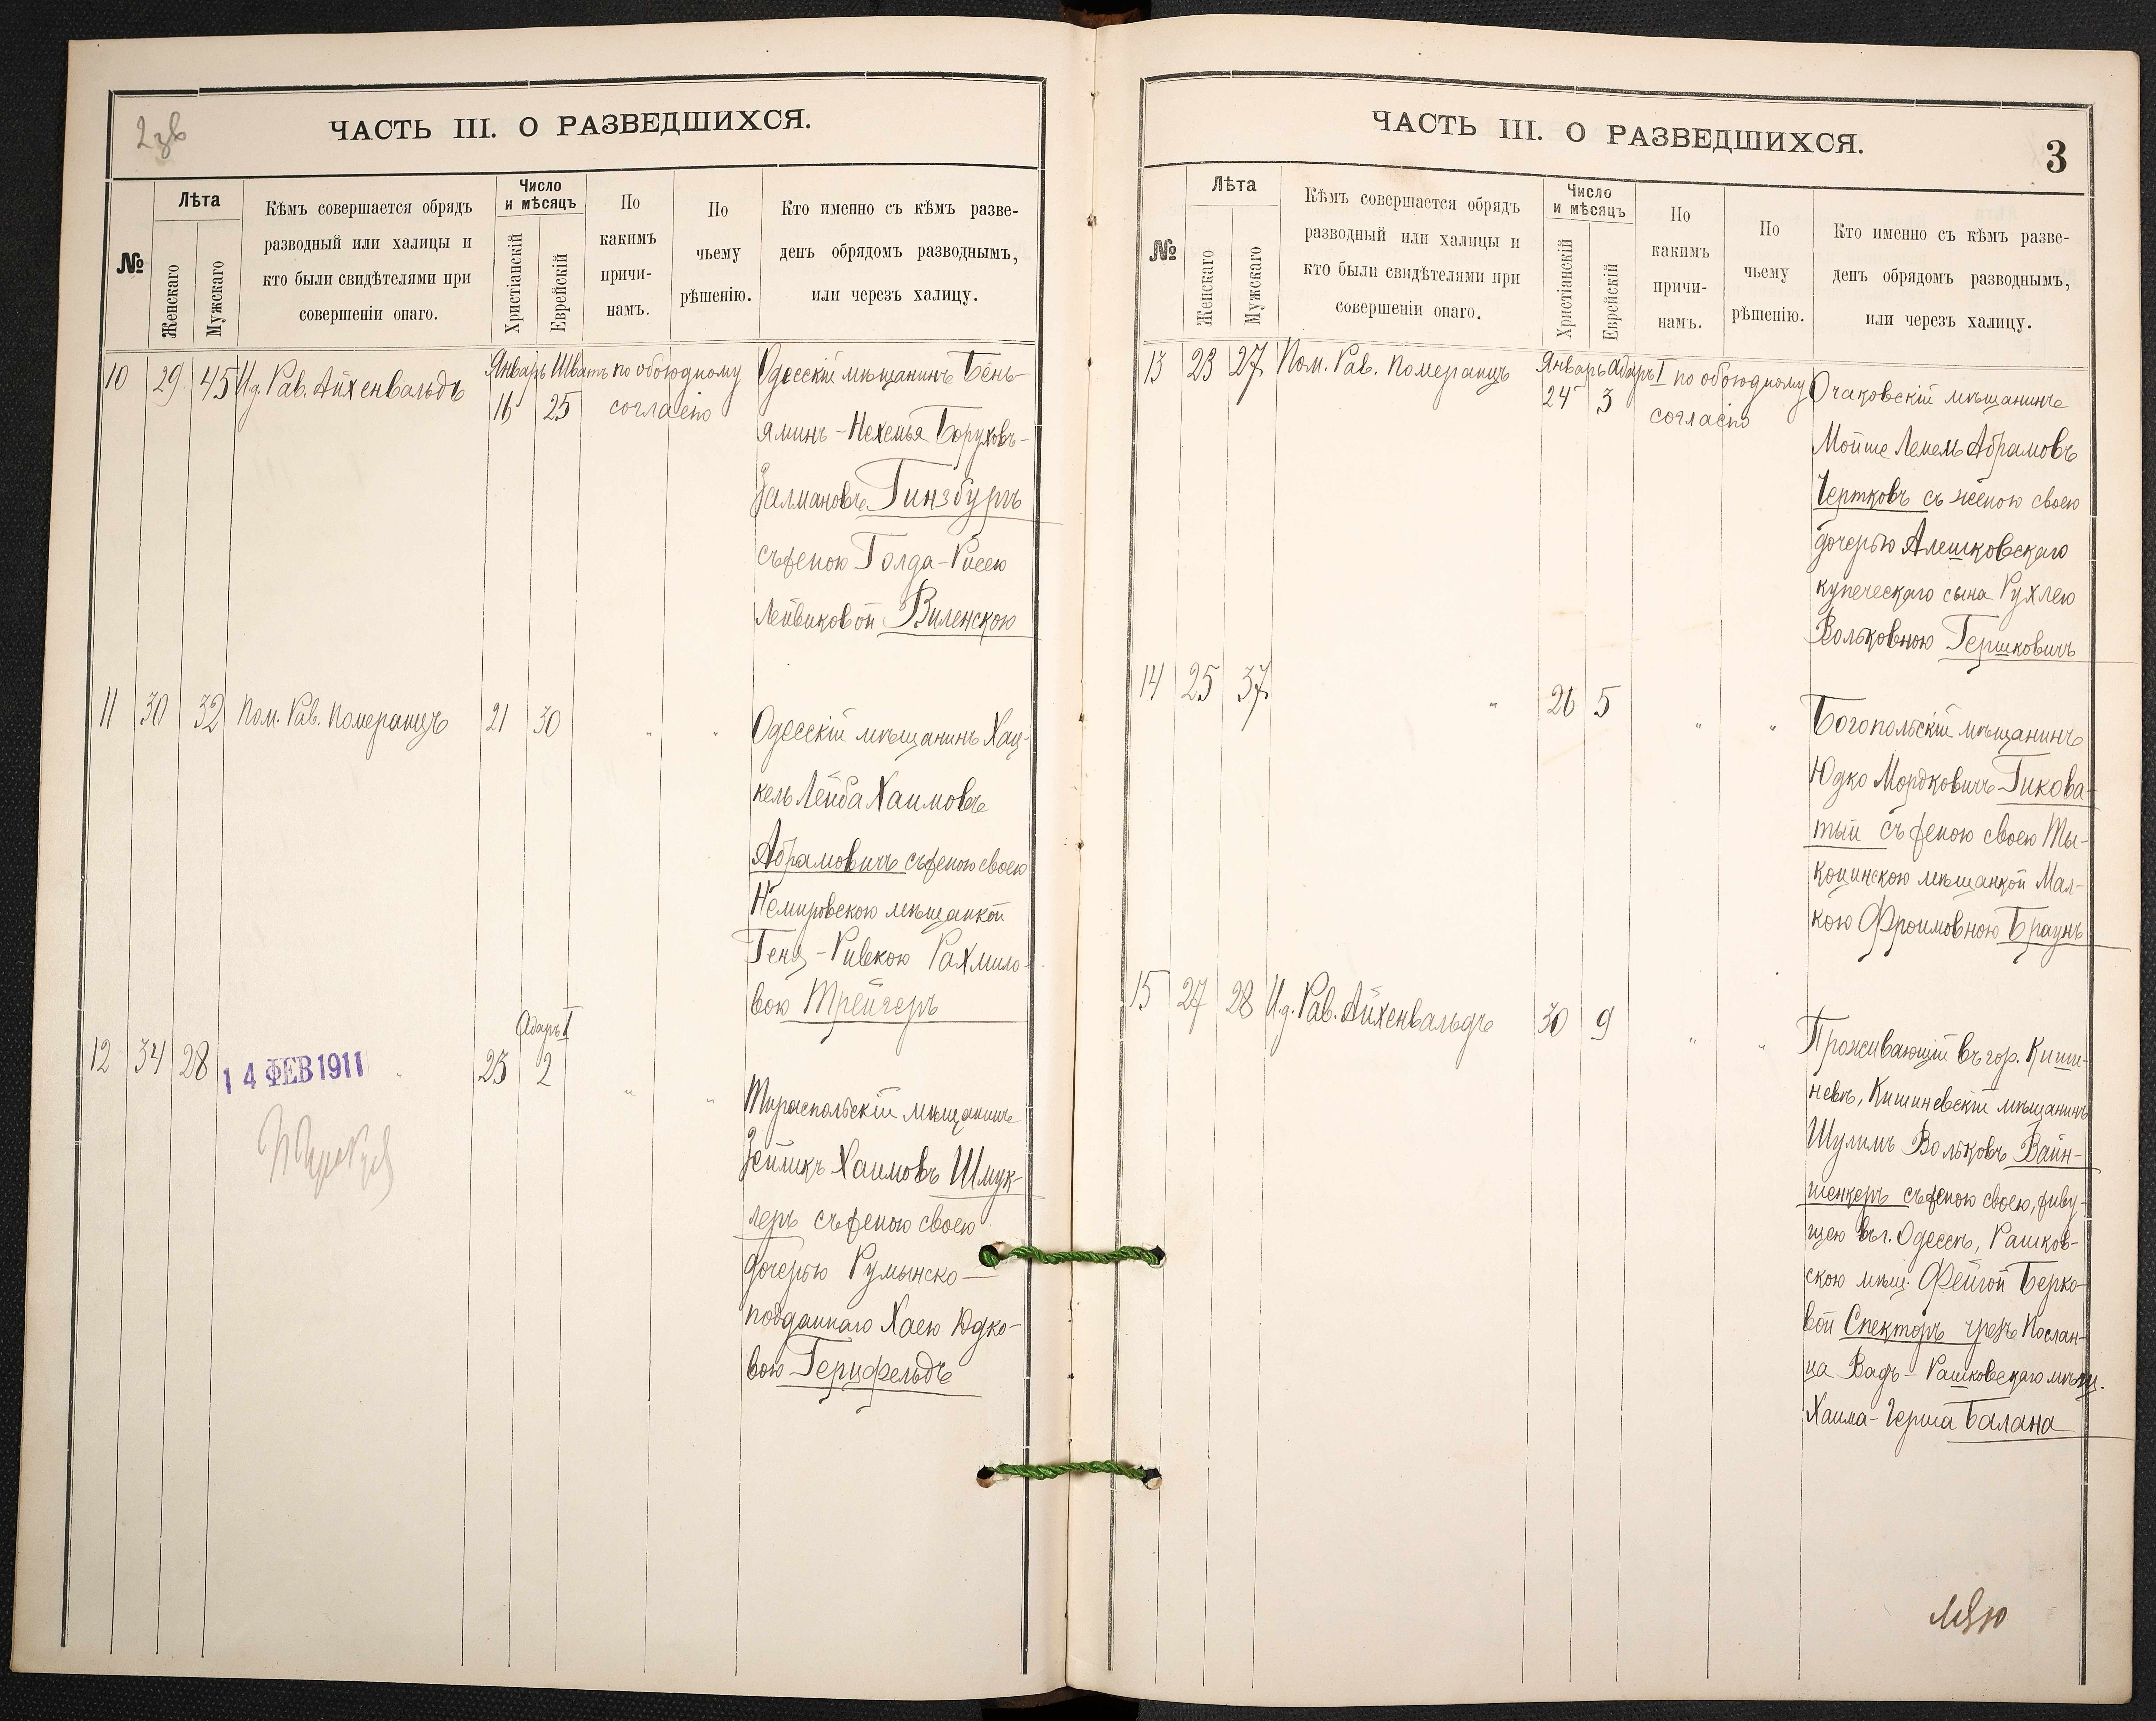 2 зв
ЧАСТЬ III. О РАЗВЕДШИХСЯ.
№
Лѣта
Женскаго
Мужскаго
Кѣмъ совершается обрядъ
разводный или халицы и
кто были свидѣтелями при
совершеніи онаго.
Число
и мѣсяцъ
Христіанскій
Еврейскій
По
какимъ
причи-
намъ.
По
чьему
рѣшенію.
Кто именно съ кѣмъ разве-
денъ обрядомъ разводнымъ,
или черезъ халицу.
10 29 45 И.д. Рав. Айхенвальдъ
Январь Шватъ по обоюдному
16 25 согласію
Одесскій мѣщанинъ Бень-
яминъ-Нехемья Боруховъ-
Залмановъ Гинзбургъ
съ женою Голда-Рисею
Лейвиковой Виленскою
11 30 32 Пом. Рав. Померанцъ 21 30 " "
Одесскій мѣщанинъ Хац-
кель Лейба Хаимовъ
Абрамовичъ съ женою своею
Немировскою мѣщанкой
Геня-Ривкою Рахмило-
вою Трейгеръ
Адаръ I
12 34 28 " 23 2 " "
14 ФЕВ 1911
Тираспольскій мѣщанинъ
Зейликъ Хаимовъ Шмук-
леръ съ женою своею
дочерью Румынско-
подданнаго Хаею Юдко-
вою Герцфельдъ
ЧАСТЬ III. О РАЗВЕДШИХСЯ.
3
№
Лѣта
Женскаго
Мужскаго
Кѣмъ совершается обрядъ
разводный или халицы и
кто были свидѣтелями при
совершеніи онаго.
Число
и мѣсяцъ
Христіанскій
Еврейскій
По
какимъ
причи-
намъ.
По
чьему
рѣшенію.
Кто именно съ кѣмъ разве-
денъ обрядомъ разводнымъ,
или черезъ халицу.
13 23 27 Пом. Рав. Померанцъ
Январь Адаръ I по обоюдному
24 3 согласію
Очаковскій мѣщанинъ
Мойше Лемель Абрамовъ
Чертковъ съ женою своею
дочерью Алешковскаго
купеческаго сына Рухлею
Вольковною Гершковичъ
14 25 37 " 26 5 " "
Богопольскій мѣщанинъ
Юдко Мордковичъ Гикова-
тый съ женою своею Ты-
коцинскою мѣщанкой Мал-
кою Фроимовною Браунъ
15 27 28 И.д. Рав. Айхенвальдъ 30 9 " "
Проживающій въ гор. Киши-
невѣ, Кишиневскій мѣщанинъ
Шулимъ Вольковъ Вайн-
шенкеръ съ женою своею, живу-
щею въ г. Одессѣ, Рашков-
скою мѣщ. Фейгой Берко-
вой Спекторъ чрезъ Послан-
ца Вадъ-Рашковскаго мѣщ.
Хаима-Герша Балана